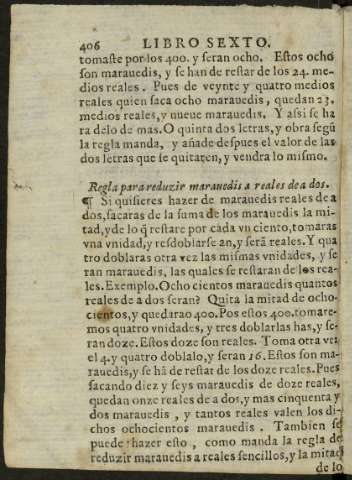 406 LIBRO SEXTO.
tomaste por los 400. y seran ocho. Estos ocho
son marauedis, y se han de restar de los 24. me-
dios reales. Pues de veynte y quatro medios
reales quien saca ocho marauedis, quedan 23.
medios reales, y nueue marauedis. Y assi se ha
ra delo de mas. O quinta dos letras, y obra segũ
la regla manda, y añade despues el valor de las
dos letras que se quitaren, y vendra lo mismo.
Regla para reduzir marauedis a reales de a dos.
¶ Si quisieres hazer de marauedis reales de a
dos, sacaras de la suma de los marauedis la mi-
tad, y de lo q̃ restare por cada vn ciento, tomaras
vna vnidad, y resdoblarse an, y serã reales. Y qua
tro doblaras otra vez las mismas vnidades, y se
ran marauedis, las quales se restaran de los rea-
les. Exemplo. Ocho cientos marauedis quantos
reales de a dos seran? Quita la mitad de ocho-
cientos, y quedarao 400. Pos estos 400. tomare-
mos quatro vnidades, y tres doblarlas has, y se-
ran doze. Estos doze son reales. Toma otra vez
el 4. y quatro doblalo, y seran 16. Estos son ma-
rauedis, y se hã de restar de los doze reales. Pues
sacando diez y seys marauedis de doze reales,
quedan onze reales de a dos, y mas cinquenta y
dos marauedis, y tantos reales valen los di-
chos ochocientos marauedis. Tambien se
puede hazer esto, como manda la regla de
reduzir marauedis a reales sencillos, y la mitad
de lo